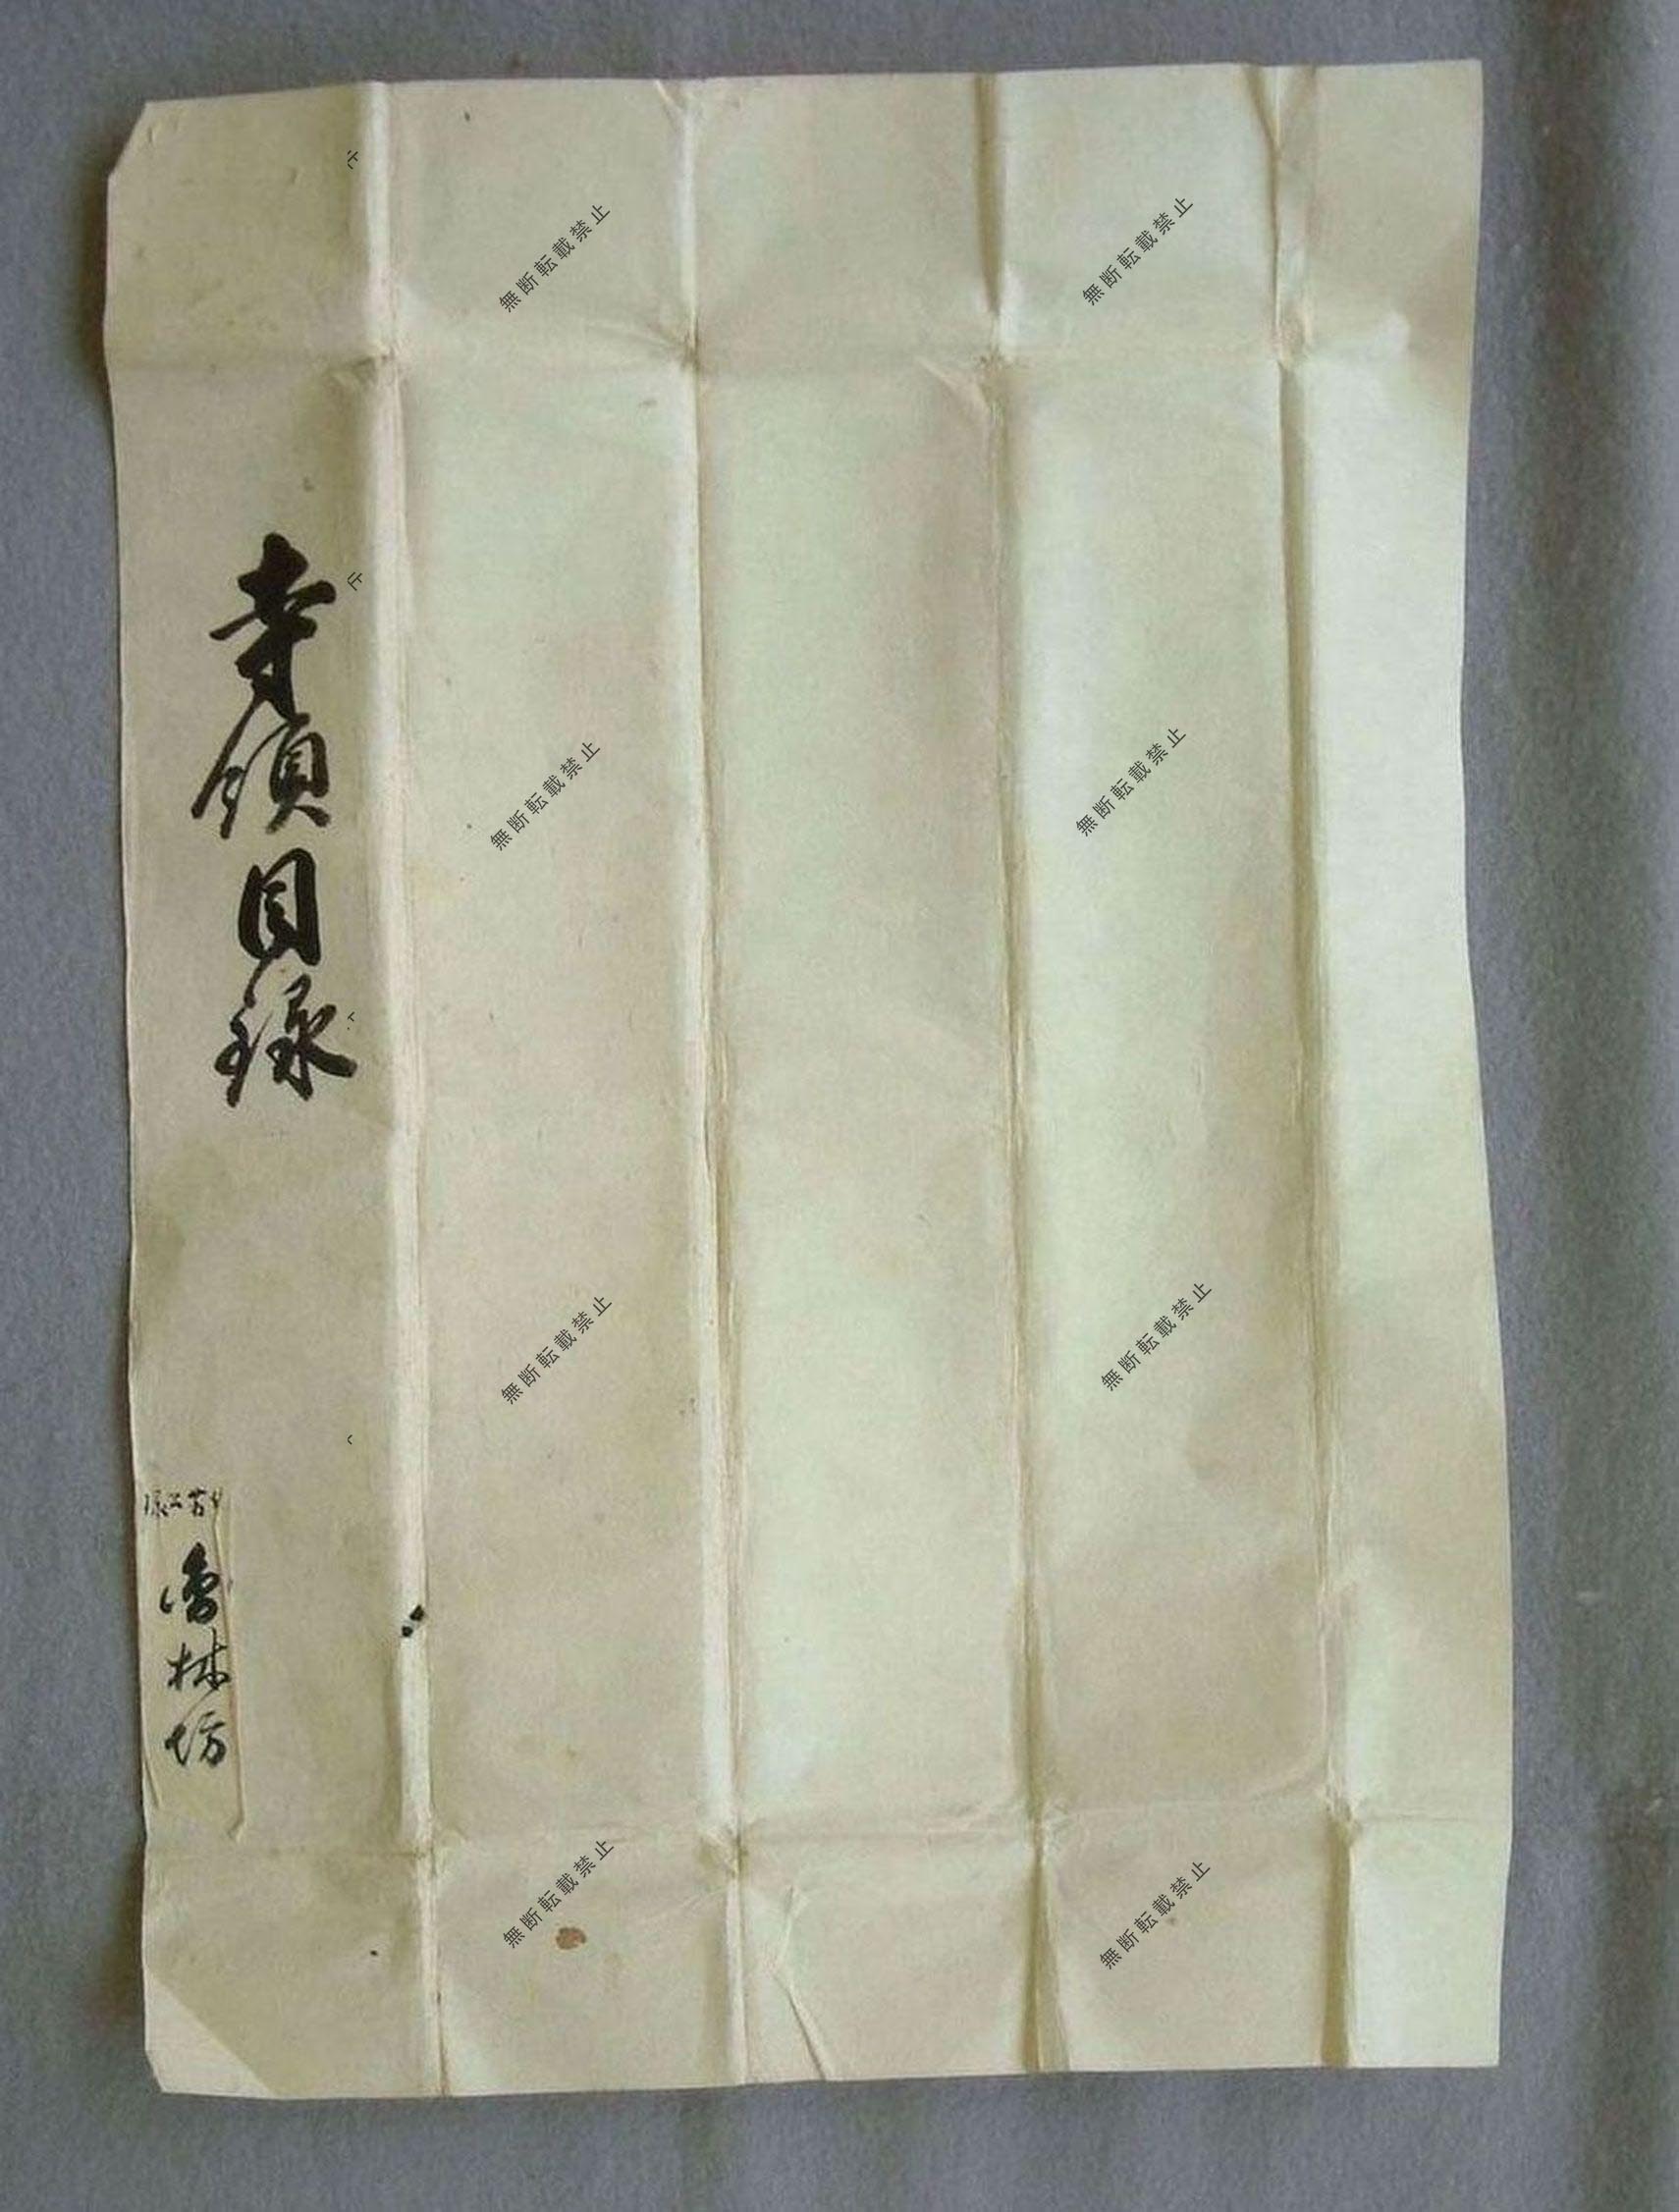 寺領目録
林坊
無断転載禁止
無断転載禁止
無断転載禁止
無断転載禁止
無断転載禁止
無断転載禁止
無断転載禁止
無断転載禁止